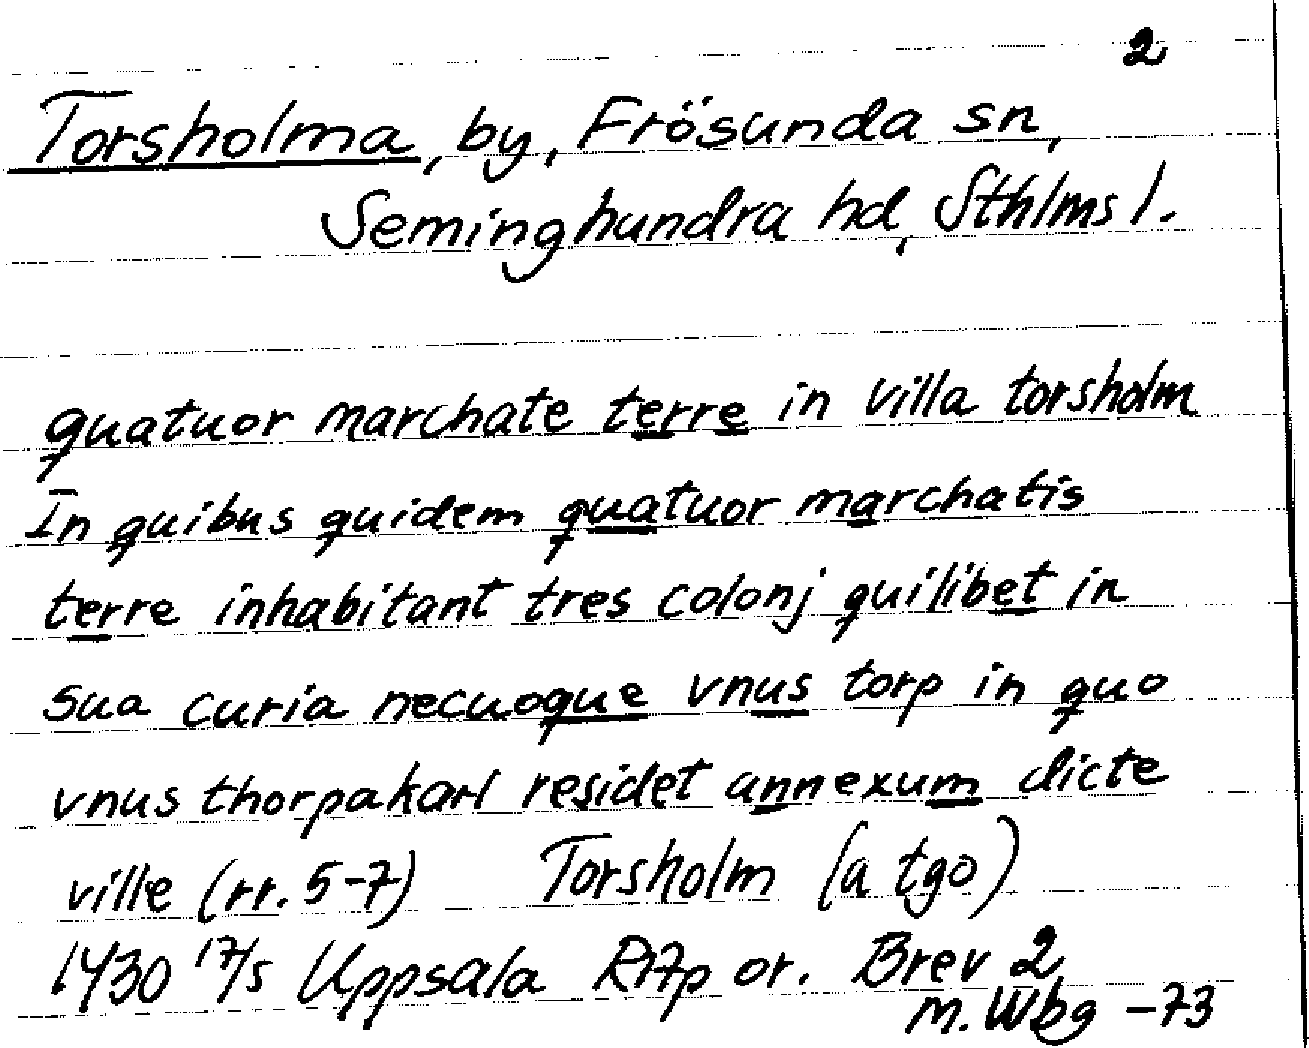 2
Torsholma, by, Frösunda sn,
Seminghundra hd, Sthlms l.
quatuor marchate terre in villa torsholm
In quibus quidem quatuor marchatis
terre inhabitant tres colonj quilibet in
sua curia necuoque vnus torp in quo
vnus thorpakarl residet annexum dicte
ville (rr. 5-7) Torsholm (a tgo)
1430 17/5 Uppsala RAp or. Brev 2
m. Wbg -73